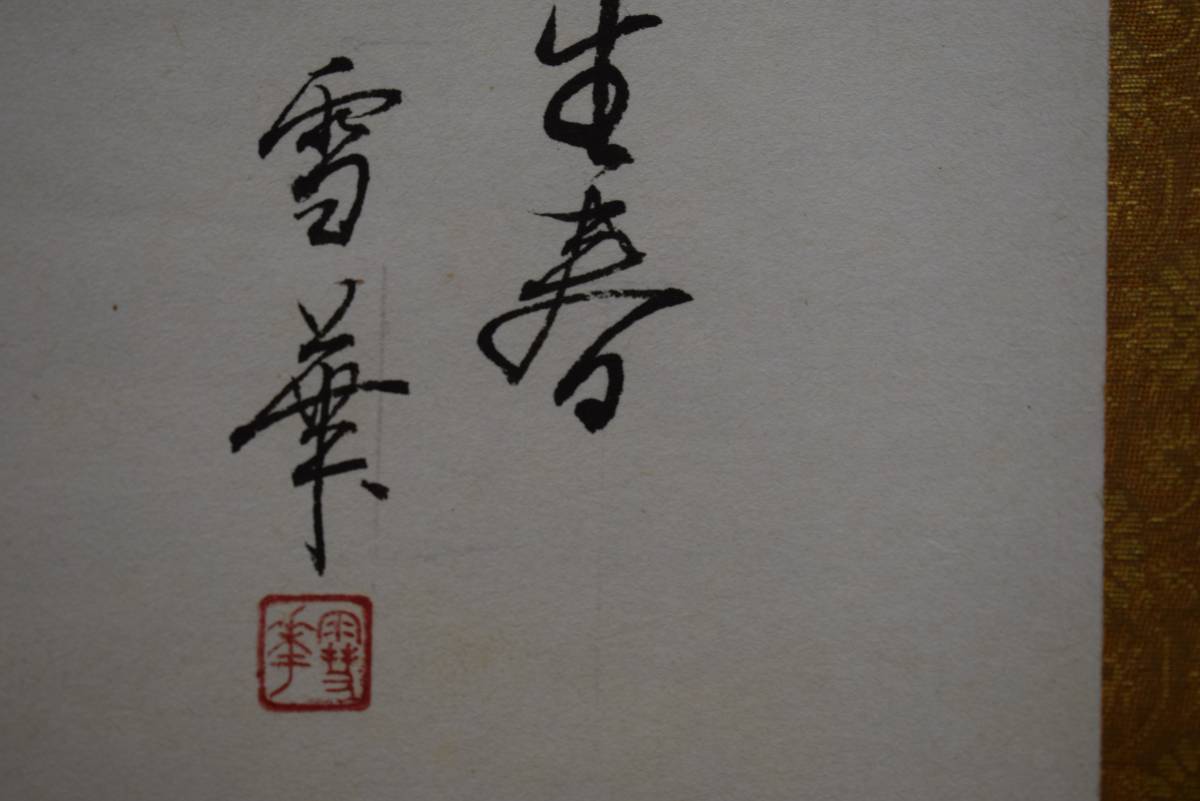 生春
雪華
雪華